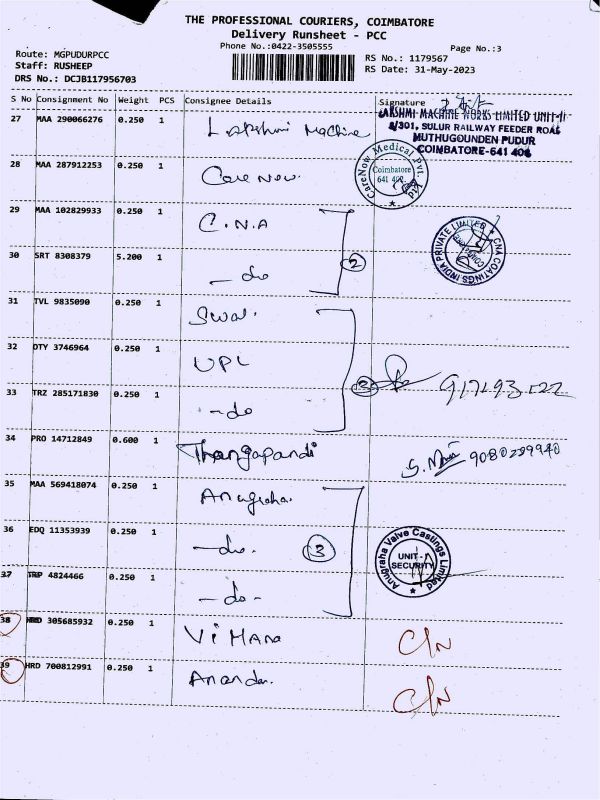 THE PROFESSIONAL COURIERS, COIMBATORE
Delivery Runsheet - PCC
Phone No.:0422-3505555
Page No.:3
Route: MGPUDURPCC
Staff: RUSHEEP
DRS No.: DCJB117956703
RS No.: 1179567
RS Date: 31-May-2023
S No Consignment No Weight PCS Consignee Details Signature
27 MAA 290066276 0.250 1 Lakshmi Machine
LAKSHMI MACHINE WORKS LIMITED UNIT-II
8/301, SULUR RAILWAY FEEDER ROAD
MUTHUGOUNDEN PUDUR
COIMBATORE-641 406
28 MAA 287912253 0.250 1 Care Now
CareNow Medical Pvt. Ltd
Coimbatore
641 402
29 MAA 102829933 0.250 1 C.N.A
CNA COATINGS INDIA PRIVATE LIMITED
30 SRT 8308379 5.200 1 - do 2
31 TVL 9835090 0.250 1 Swal.
32 DTY 3746964 0.250 1 UPL
33 TRZ 285171830 0.250 1 - do
34 PRO 14712849 0.600 1 Thangapandi
35 MAA 569418074 0.250 1 Anugraha.
36 EDQ 11353939 0.250 1 - do. 3
Anugraha Valve Castings Limited
UNIT-
SECURITY
37 TRP 4824466 0.250 1 - do -
38 HRD 305685932 0.250 1 ViMana C/N
39 HRD 700812991 0.250 1 C/N